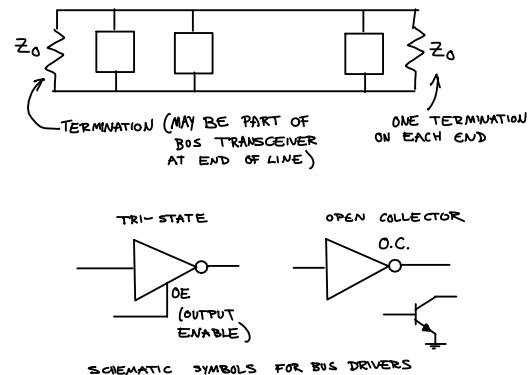 Z0
Z0
TERMINATION (MAY BE PART OF
BUS TRANSCEIVER
AT END OF LINE)
ONE TERMINATION
ON EACH END
TRI-STATE
OPEN COLLECTOR
O.C.
OE
(OUTPUT
ENABLE)
SCHEMATIC SYMBOLS FOR BUS DRIVERS